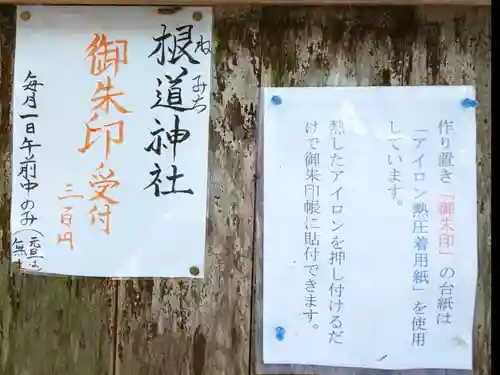 根道神社
ねみち
御朱印受付
三百円
毎月一日午前中のみ
作り置き「御朱印」の台紙は
「アイロン熱圧着用紙」を使用
しています。
熱したアイロンを押し付けるだ
けで御朱印帳に貼付できます。